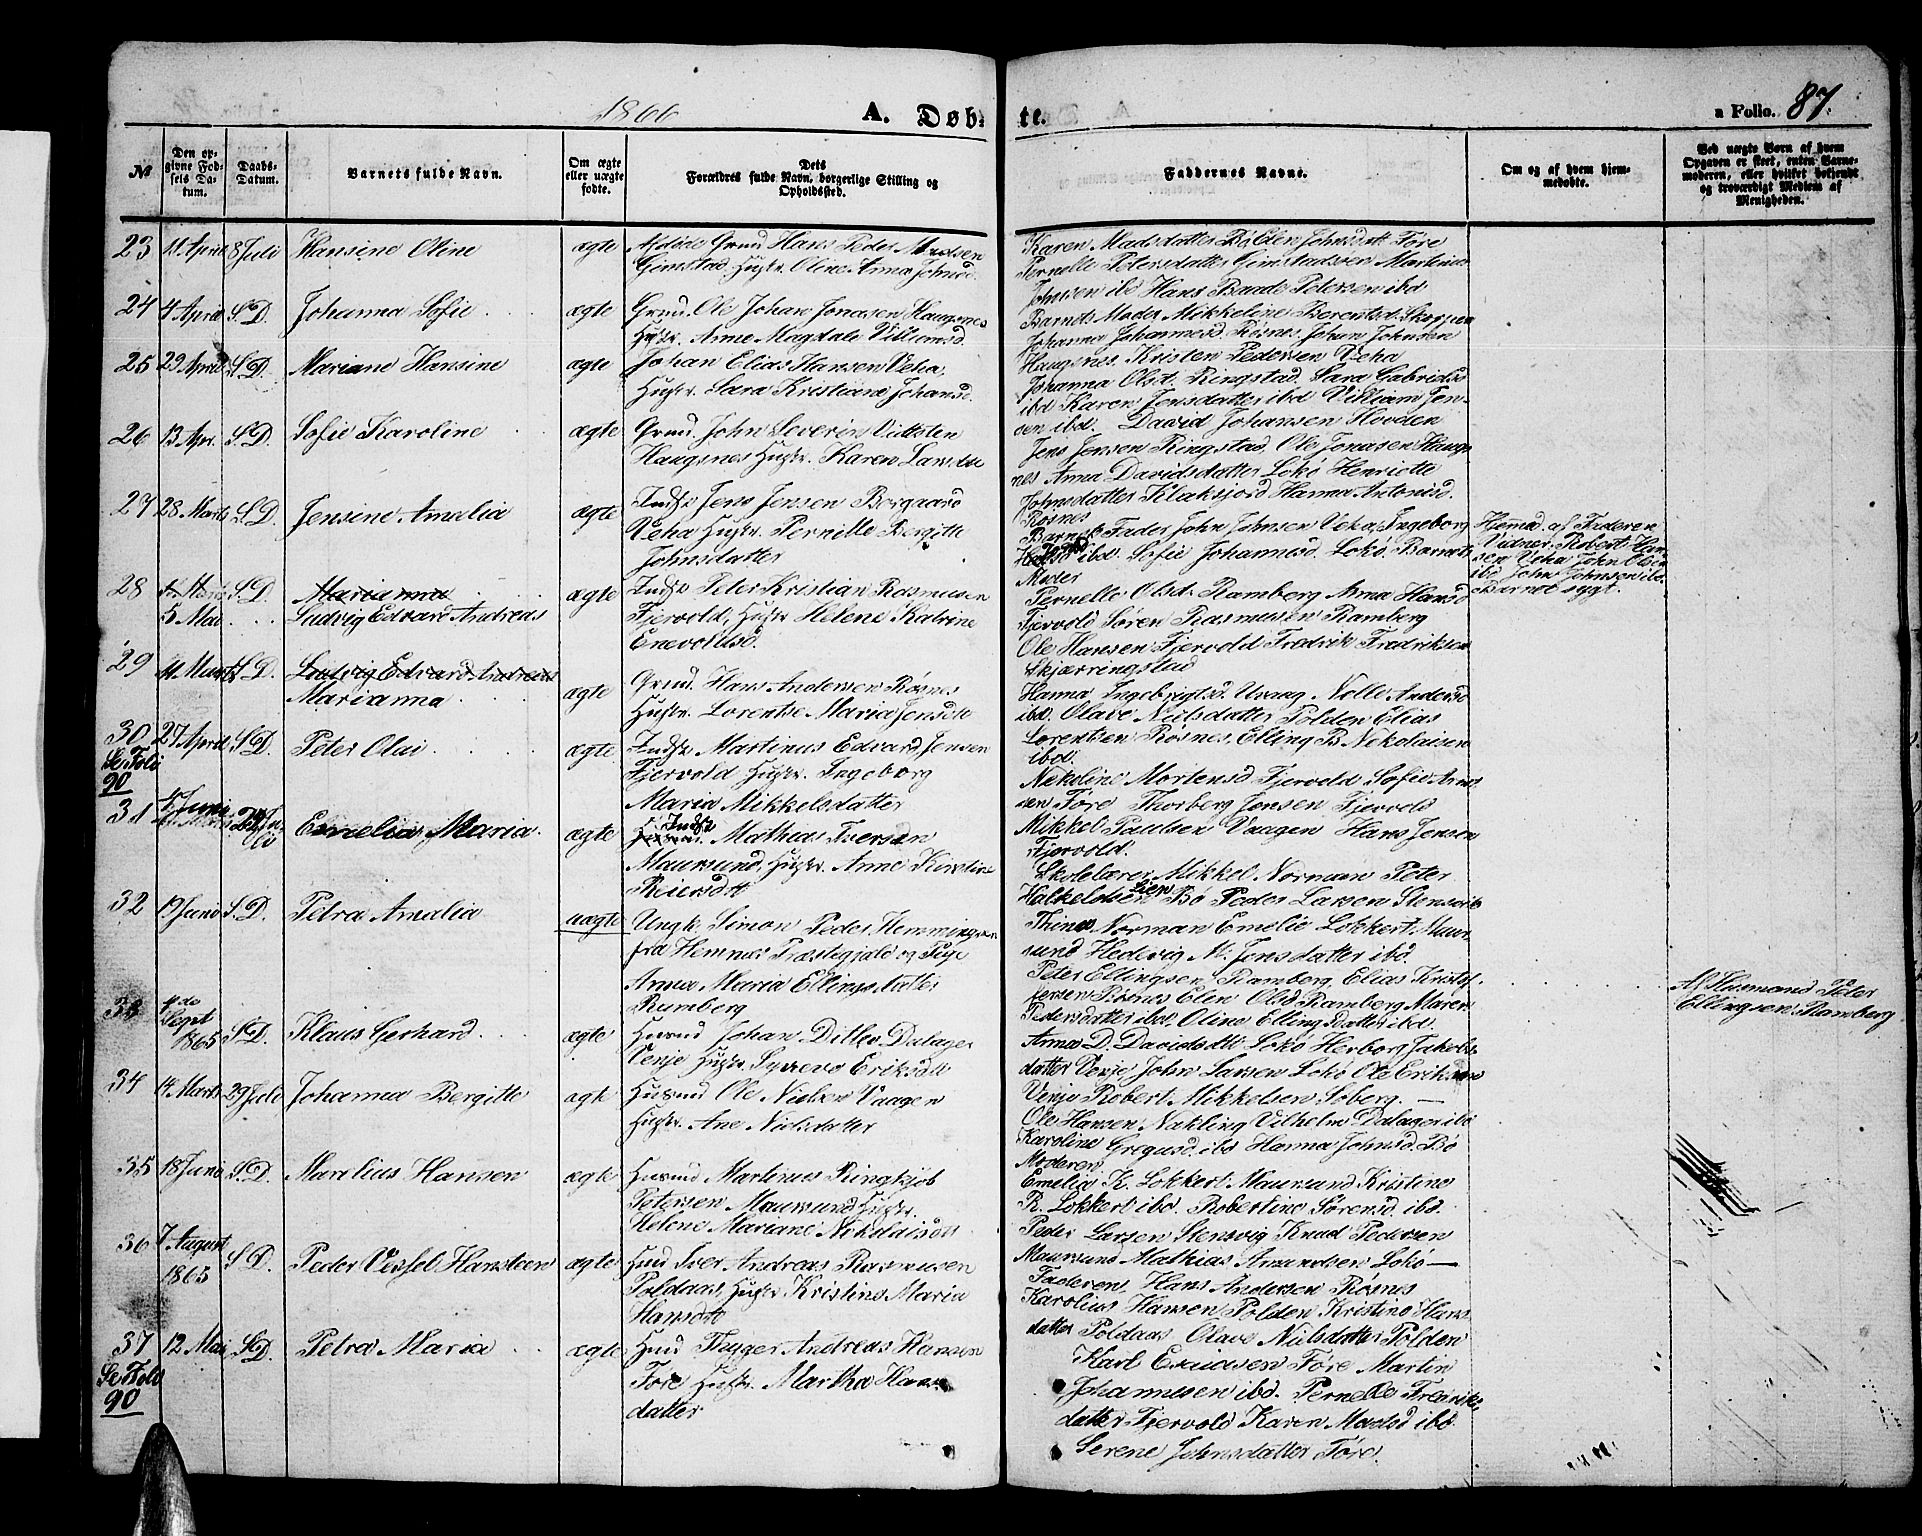 1866
A. Døb-
te.
a Folio. 87.
№
Den op-
givne Fød-
sels Da-
tum.
Daabs-
Datum.
Barnets fulde Navn.
Om ægte
eller uægte
fødte.
Dets
Forældres fulde Navn, borgerlige Stilling og
Opholdssted.
Faddernes Navne.
Om og af hvem hjem-
medøbte.
Ved uægte Børn af hvem
Opgaven er skeet, enten Barne-
moderen, eller hvilket bekjendt
og troværdigt Medlem af
Menigheden.
23 11 April 8 Juli Hansine Oline ægte Hans Peder Madsen
Gimstad, Hustr. Oline Anna Johnsd.
Karen Madsdatter Bö Elen Johnsdtt Före
Pernelle Petersdatter Gimstad Martinus
Johnsen ibd Hans Baade Petersen ibd
24 4 April S.D. Johanna Sofie ægte Grmd. Ole Johan Jonassen Haugsnes
Hustr. Anne Magdale Villumsd.
Barnets Moder Mikkeline Berentsd. Skorpen
Johanna Johannesd. Røsnes Johan Johnsen
Haugsnes Kristen Pedersen Veha
25 29 April S.D. Mariane Hansine ægte Johan Elias Hansen Veha,
Hustr. Sara Kristiane Johansd.
Johanna Olsd. Ringstad. Sara Gabrielsd
ibd Karen Jensdatter ibd Villiam Jen-
sen ibd. David Johansen Hovden
26 13 Apr. S.D. Sofie Karoline ægte Grmd. John Severin Vittsten
Haugsnes Hustr. Karen Larsdtr
Jens Jensen Ringstad, Ole Jonasen Haugs
nes Anna Davidsdatter Lokö Henriette
Johnsdatter Klaksjord Hanna Antonisd.
Røsnes
27 28 Marts S.D. Jensine Amalia ægte Indst Jens Jensen Borgaard
Veha Hustr. Pernille Bergitte
Johnsdatter
Barnets Fader John Johnsen Veha, Ingeborg
ibd. Sofie Johannesd. Lokö Barnets
Moder
Hjemmd. af Faderen
Vidner. Robert Han-
sen Veha John Olsen
ibd John Johnsen ibd.
Barnet sygt.
28 S.D. Marianna
5 Mai Ludvig Edvard Andreas ægte Indst Peter Kristian Rasmusen
Fjervold, Hustr Helene Katrine
Enevoldsd.
Pernelle Olsd. Ramberg Anna Hansd
Fjervold Sören Rasmusen Ramberg
Ole Hansen Fjervold Fredrik Fredriksen
Skjærringstad
29 11 Marts S.D. Ludvig Edvard Andreas
Marianna ægte Grmd. Hans Andersen Røsnes
Hustr. Lorentse Maria Jensdtr
Hanna Ingebrigtsd. Nolle Andersd
ibd. Olave Nielsdatter Polden Elias
Lorentsen Røsnes, Elling B. Nikolaisen
ibd.
30 27 April S.D. Peter Olai ægte Indst Martinus Edvard Jensen
Fjervold Hustr. Ingeborg
Maria Mikkelsdatter
Se Foli
90
Nekoline Mortensd Fjervold Sofie
Före Thorberg Jensen Fjervold
Mikkel Paulsen Vaagen Hans Jensen
Fjervold.
31 Juni Emelia Maria ægte Indst Mathias Iversen
Maursund, Hustr. Anne Kirstine
Reiersdtt
Skolelærer Mikkel Norman Peter
Bö Peder Larsen Stensvik
Norman Emelie Lokkert Maur-
sund Hedevig M. Jensdatter ibd.
32 19 Juni S.D. Petra Amalia uægte Ungk. Simon Peder Hemmingsen
fra Hemnes Præstegjæld og Pige
Anna Maria Ellingsdatter
Ramberg
Peter Ellingsen Ramberg, Elias Kristof-
fersen Røsnes Elen Olsd Ramberg Maren
Pedersdatter ibd, Oline Ellingsdatter ibd.
Af Husmand Peter
Ellingsen Ramberg
33 4de
Sept
1865 S.D. Klaus Gerhard ægte Husmd Johan Dillev Dalager
Venje Hustr. Eriksdtt
Anna D. Davidsdtt Lokö Herborg Jakobs-
datter Venje, John Larsen Lokö Ole Eriksen
Venje Robert Mikkelsen Soberg. —
34 14 Marts 29 Juli Johanna Bergitte ægte Husmd Ole Nielsen Vaagen
Hustr. Ane Nielsdatter
Ole Hansen Nakling Vilhelm Dalager ibd
Karoline Gregusd. ibd Hanna Johnsd. Bö
Moderen
35 18 Juni S.D. Marelius Hansen ægte Husmd Martinus Ringkjöb
Petersen Maursund Hustr.
Helene Mariane Nikolaisdtt
Emelia K. Lokkert Maursund Kristine
R. Lokkert ibd. Robertine Sörensd. ibd.
Peder Larsen Stensvig Knud Pedersen
Maursund Mathias Amundsen Lokö —
36 7 August
1865 S.D. Peder Vessel Hansteen ægte Husmd Iver Andreas Rasmusen
Poldaas, Hustr Kristine Maria
Hansdtt
Faderen, Hans Andersen Røsnes
Karolius Hansen Polden Kristine Hans-
datter Poldaas Olave Nielsdatter Polden
37 12 Mai S.D. Petra Maria ægte Husmd Thyger Andreas Hansen
Före Hustr. Martha Hans-
datter
Se Foli
90
Karl Före Martin
Johannesen ibd. Pernelle Fredriks
datter Fjervold Karen Madsd ibd.
Serene Johnsdatter Före.